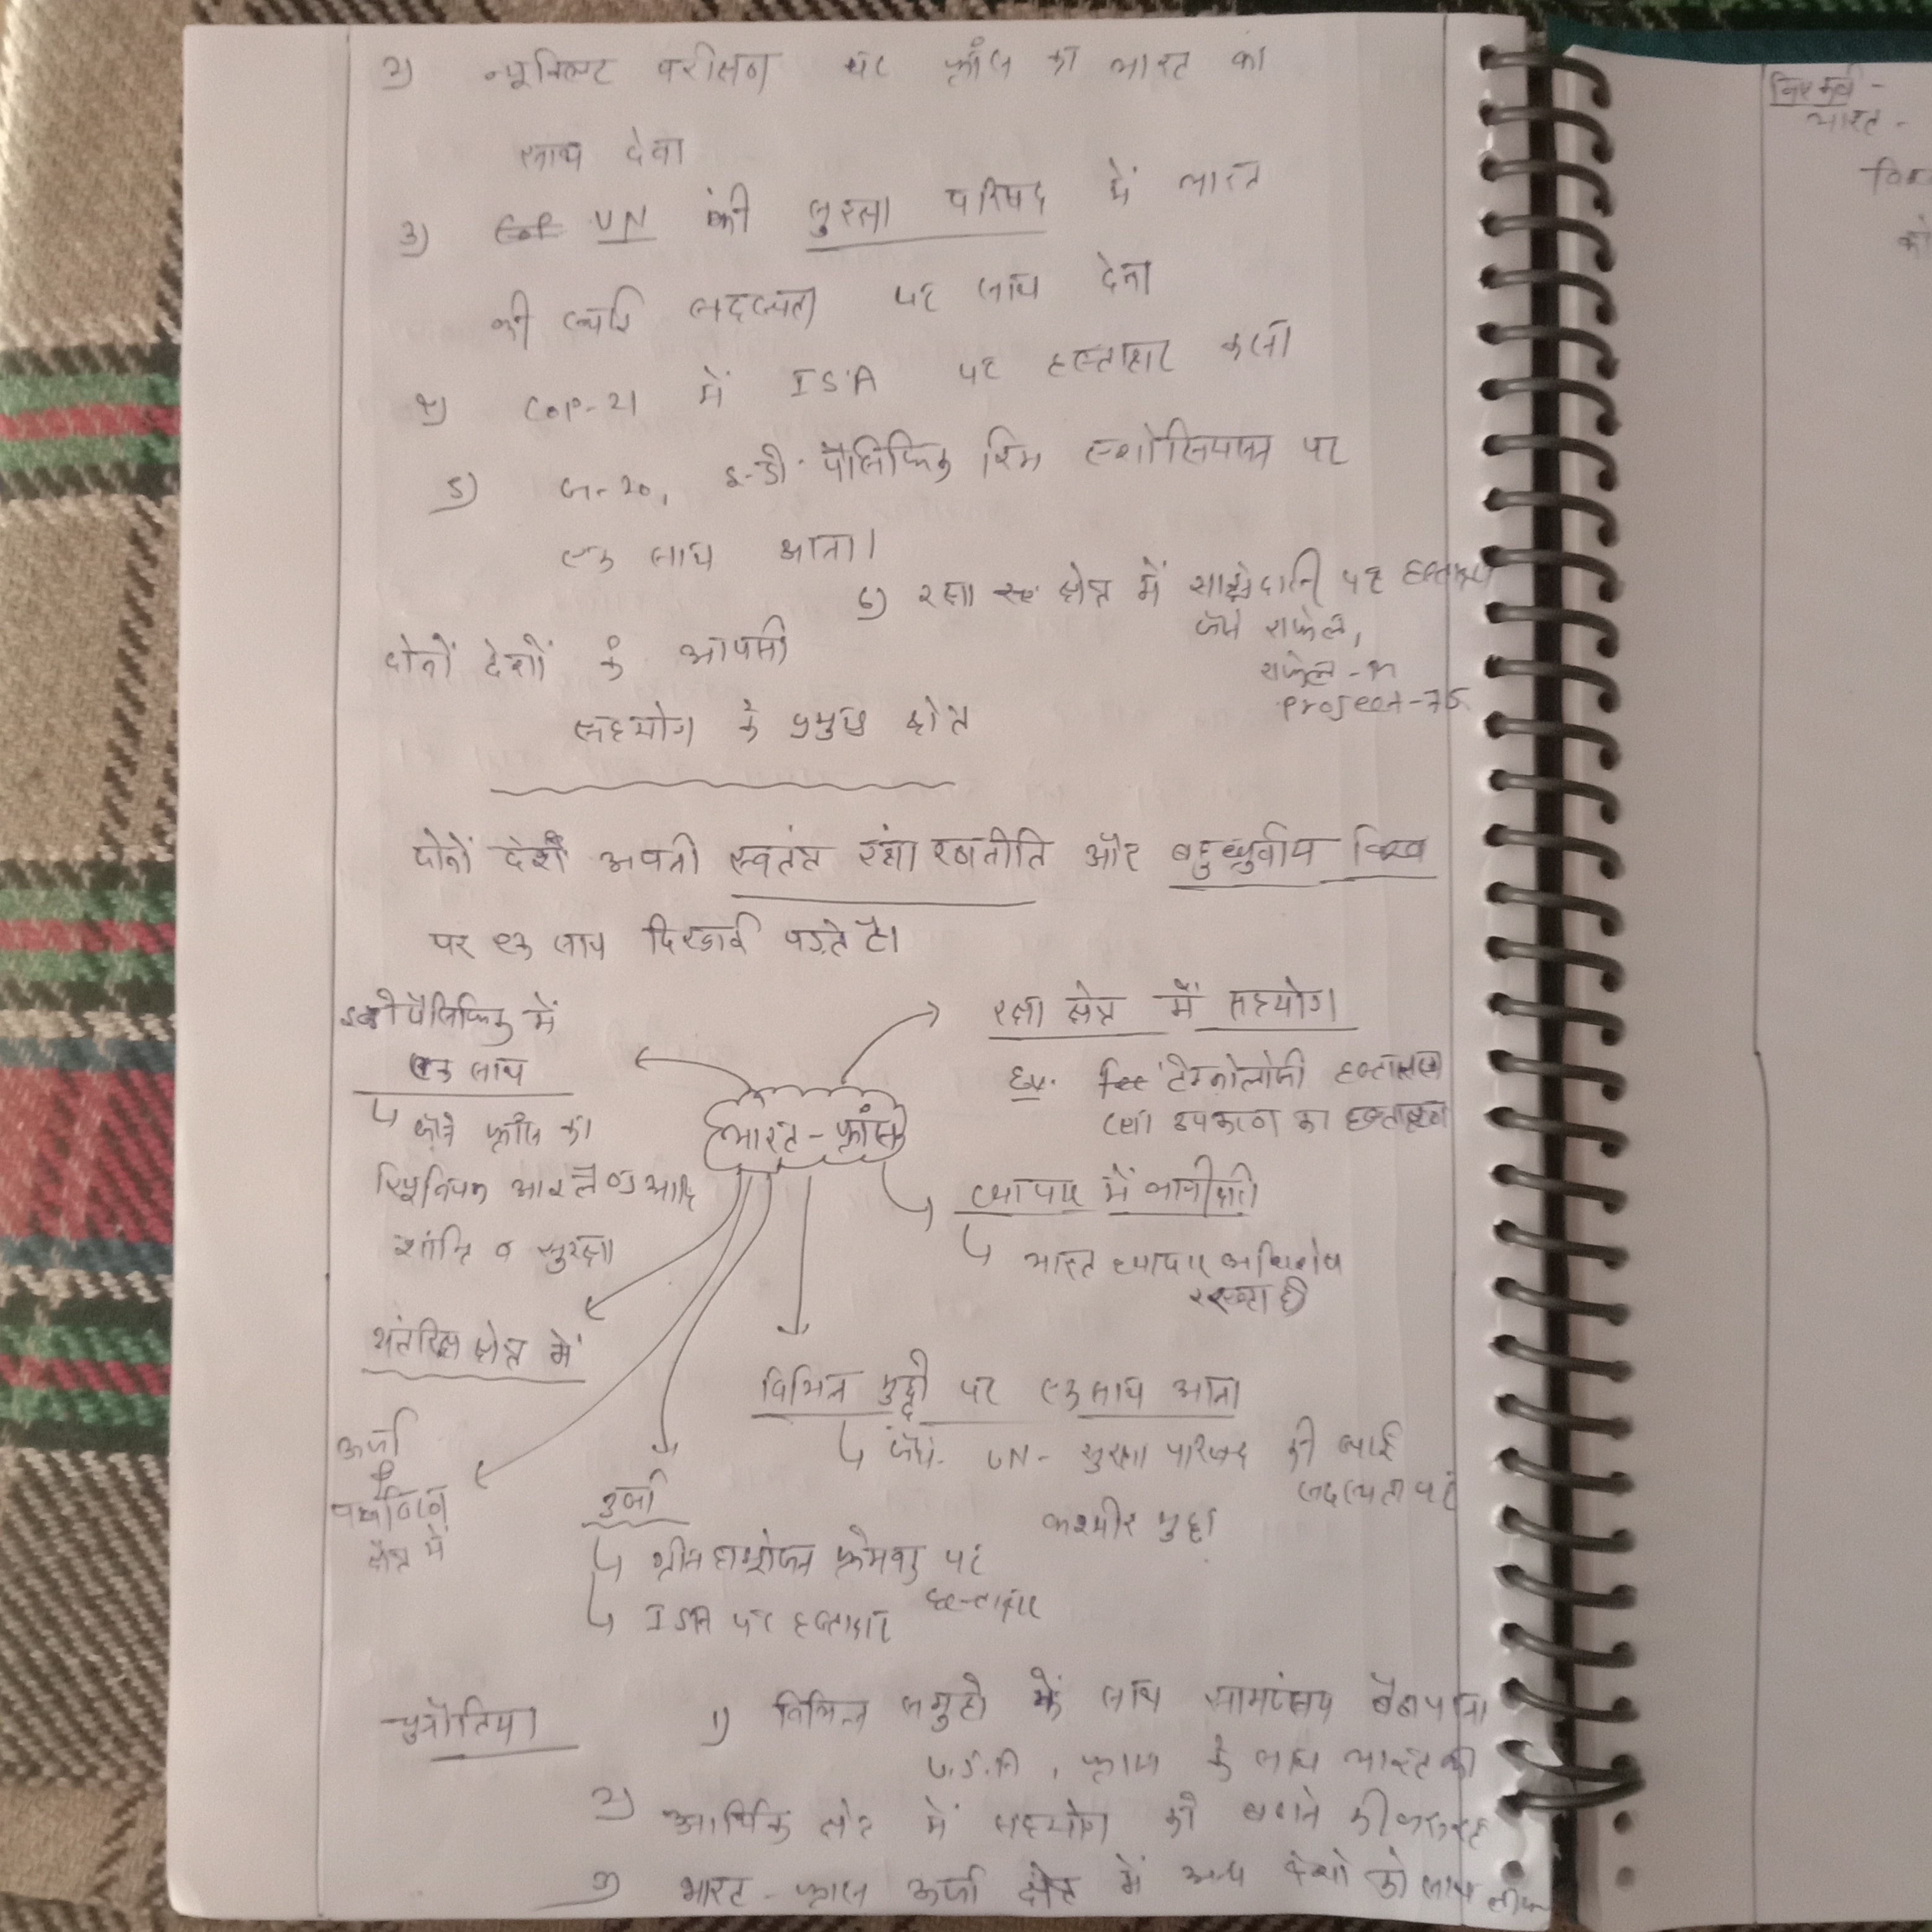 2) न्यूक्लियर परीक्षण पर फ्रांस का भारत का
साथ देना
3) UN की सुरक्षा परिषद में भारत
की स्थाई सदस्यता पर साथ देना
4) COP-21 में ISA पर हस्ताक्षर करना
5) जी-20, इन्डो-पैसिफिक रिम एसोसिएशन पर
एक साथ आना।
6) रक्षा क्षेत्र में साझेदारी पर हस्ताक्षर
जैसे राफेल,
राफेल-M
Project-75
दोनों देशों के आपसी
सहयोग के प्रमुख क्षेत्र
दोनों देशों अपनी स्वतंत्र रक्षा रणनीति और बहुध्रुवीय विश्व
पर एक साथ दिखाई पड़ते है।
भारत-फ्रांस
रक्षा क्षेत्र में सहयोग
Ex. टेक्नोलोजी हस्तांतरण
उपकरण का हस्तांतरण
व्यापार में भागीदारी
भारत व्यापार अधिशेष
रखता है
इन्डो पैसिफिक में
एक साथ
जैसे फ्रांस का
रियूनियन आइलैण्ड आदि
शांति व सुरक्षा
अंतरिक्ष क्षेत्र में
विभिन्न मुद्दों पर एक साथ आना
जैसे. UN- सुरक्षा परिषद की स्थाई
सदस्यता पर
कश्मीर मुद्दा
ऊर्जा
पर्यावरण
क्षेत्र में
ऊर्जा
ग्रीन हाइड्रोजन फ्रेमवर्क पर
हस्ताक्षर
ISA पर हस्ताक्षर
चुनौतिया
1) विभिन्न समूहो के साथ सामंजस्य बैठा पाना
U.S.A, फ्रांस के साथ भारत की
2) आर्थिक क्षेत्र में सहयोग को बढाने की जरूरत
3) भारत-फ्रांस ऊर्जा क्षेत्र में अन्य देशो को साथ
निष्कर्ष -
भारत -
को